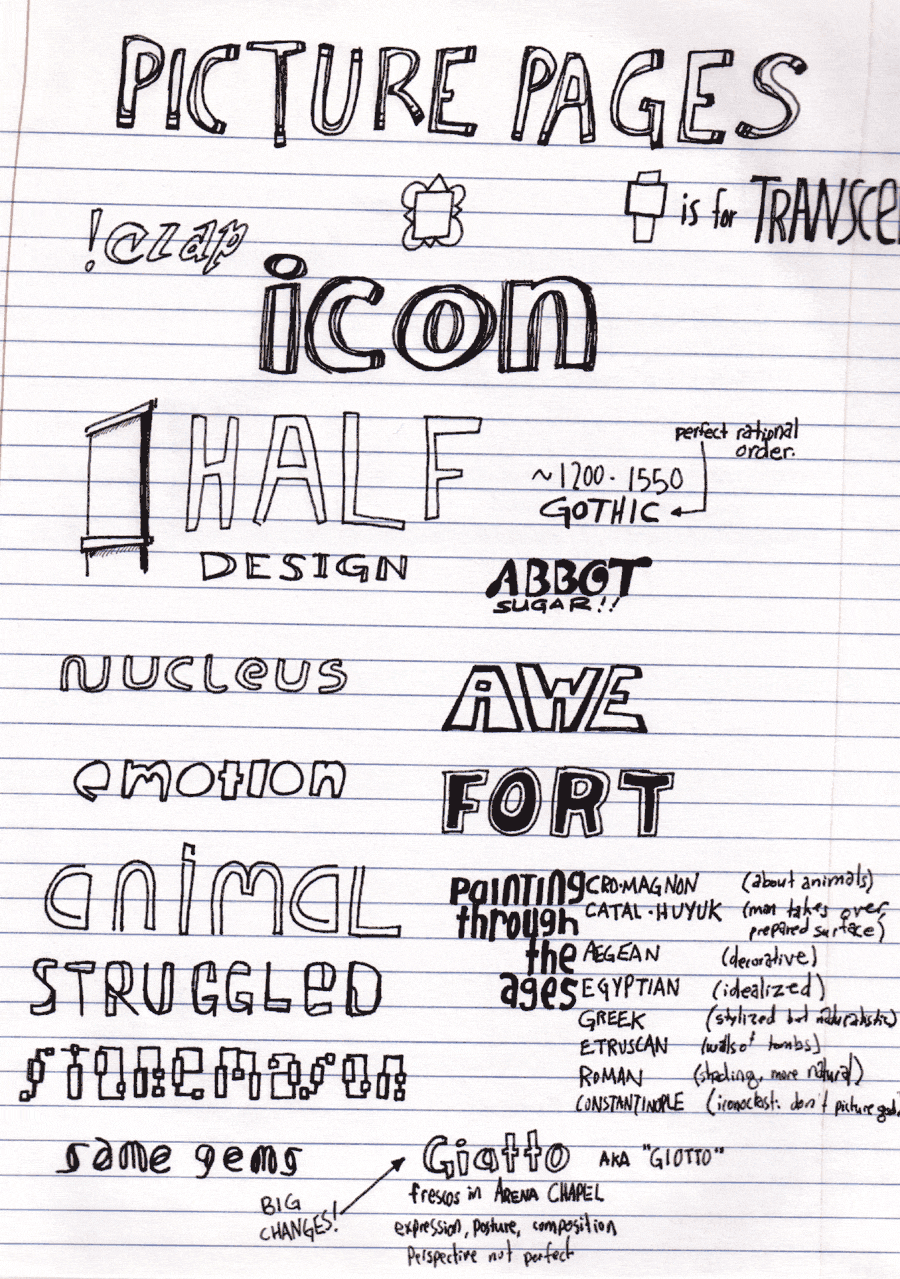 PICTURE PAGES
!@zap
is for TRANSCE
icon
1 HALF
DESIGN
perfect rational
order.
~1200 - 1550
GOTHIC
ABBOT
SUGAR!!
nucleus
AWE
emotion
FORT
animal
painting
through
the
ages
CRO-MAGNON (about animals)
CATAL-HUYUK (man takes over,
prepared surface)
AEGEAN (decorative)
EGYPTIAN (idealized)
GREEK (stylized but naturalistic)
ETRUSCAN (walls of tombs)
ROMAN (shading, more natural)
CONSTANTINOPLE (iconoclast: don't picture god
STRUGGLED
stonemason
same gems
Giotto AKA "GIOTTO"
BIG
CHANGES!
frescos in ARENA CHAPEL
expression, posture, composition
Perspective not perfect